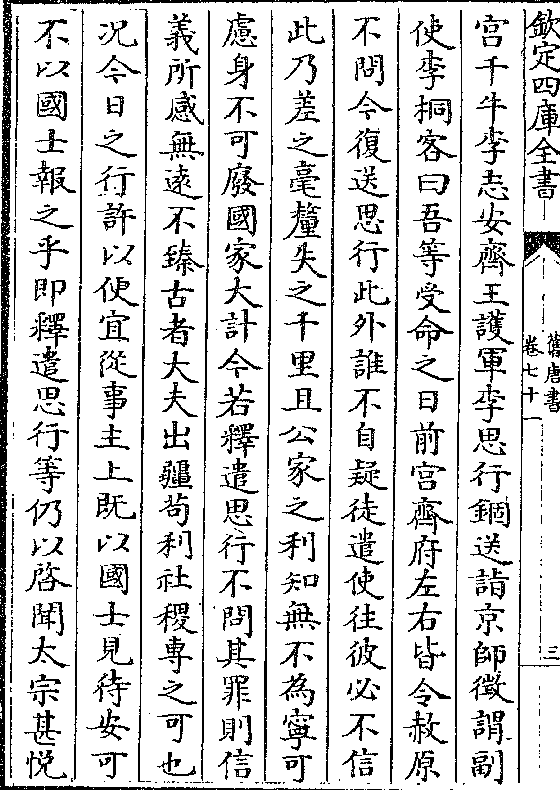 欽定四庫全書
舊唐書
卷七十一
三
宫千牛李志安齊王護軍李思行錮送詣京師徵謂副
使李桐客曰吾等受命之日前宫齊府左右皆令赦原
不問今復送思行此外誰不自疑徒遣使往彼必不信
此乃差之毫釐失之千里且公家之利知無不為寧可
慮身不可廢國家大計今若釋遣思行不問其罪則信
義所感無遠不臻古者大夫出疆苟利社稷專之可也
况今日之行許以便宜從事主上既以國士見待安可
不以國士報之乎即釋遣思行等仍以啓聞太宗甚悦